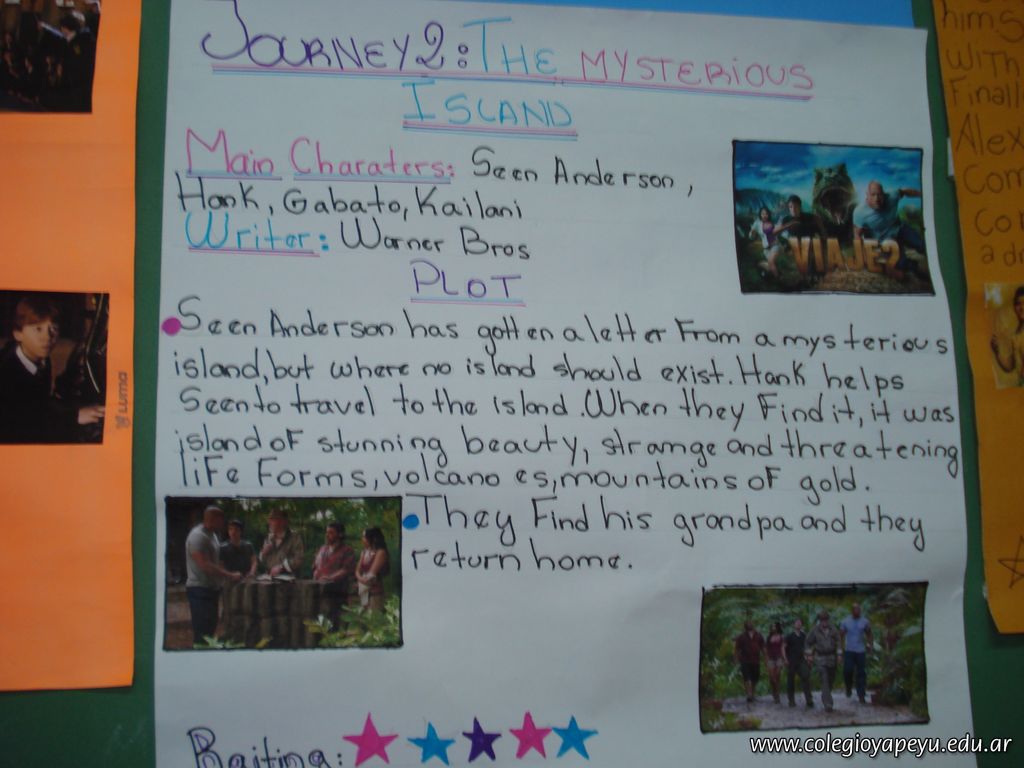 JOURNEY 2: THE MYSTERIOUS
ISLAND
Main Charaters: Seen Anderson,
Hank, Gabato, Kailani
Writer: Warner Bros
PLOT
Seen Anderson has gotten a letter from a mysterious
island, but where no island should exist. Hank helps
Seen to travel to the island. When they find it, it was
island of stunning beauty, strange and threatening
life forms, volcano es, mountains of gold.
They find his grandpa and they
return home.
Raiting:
VIAJE2
LUMA
hims
with
Finall
Alex
Com
Co
a d
www.colegioyapeyu.edu.ar